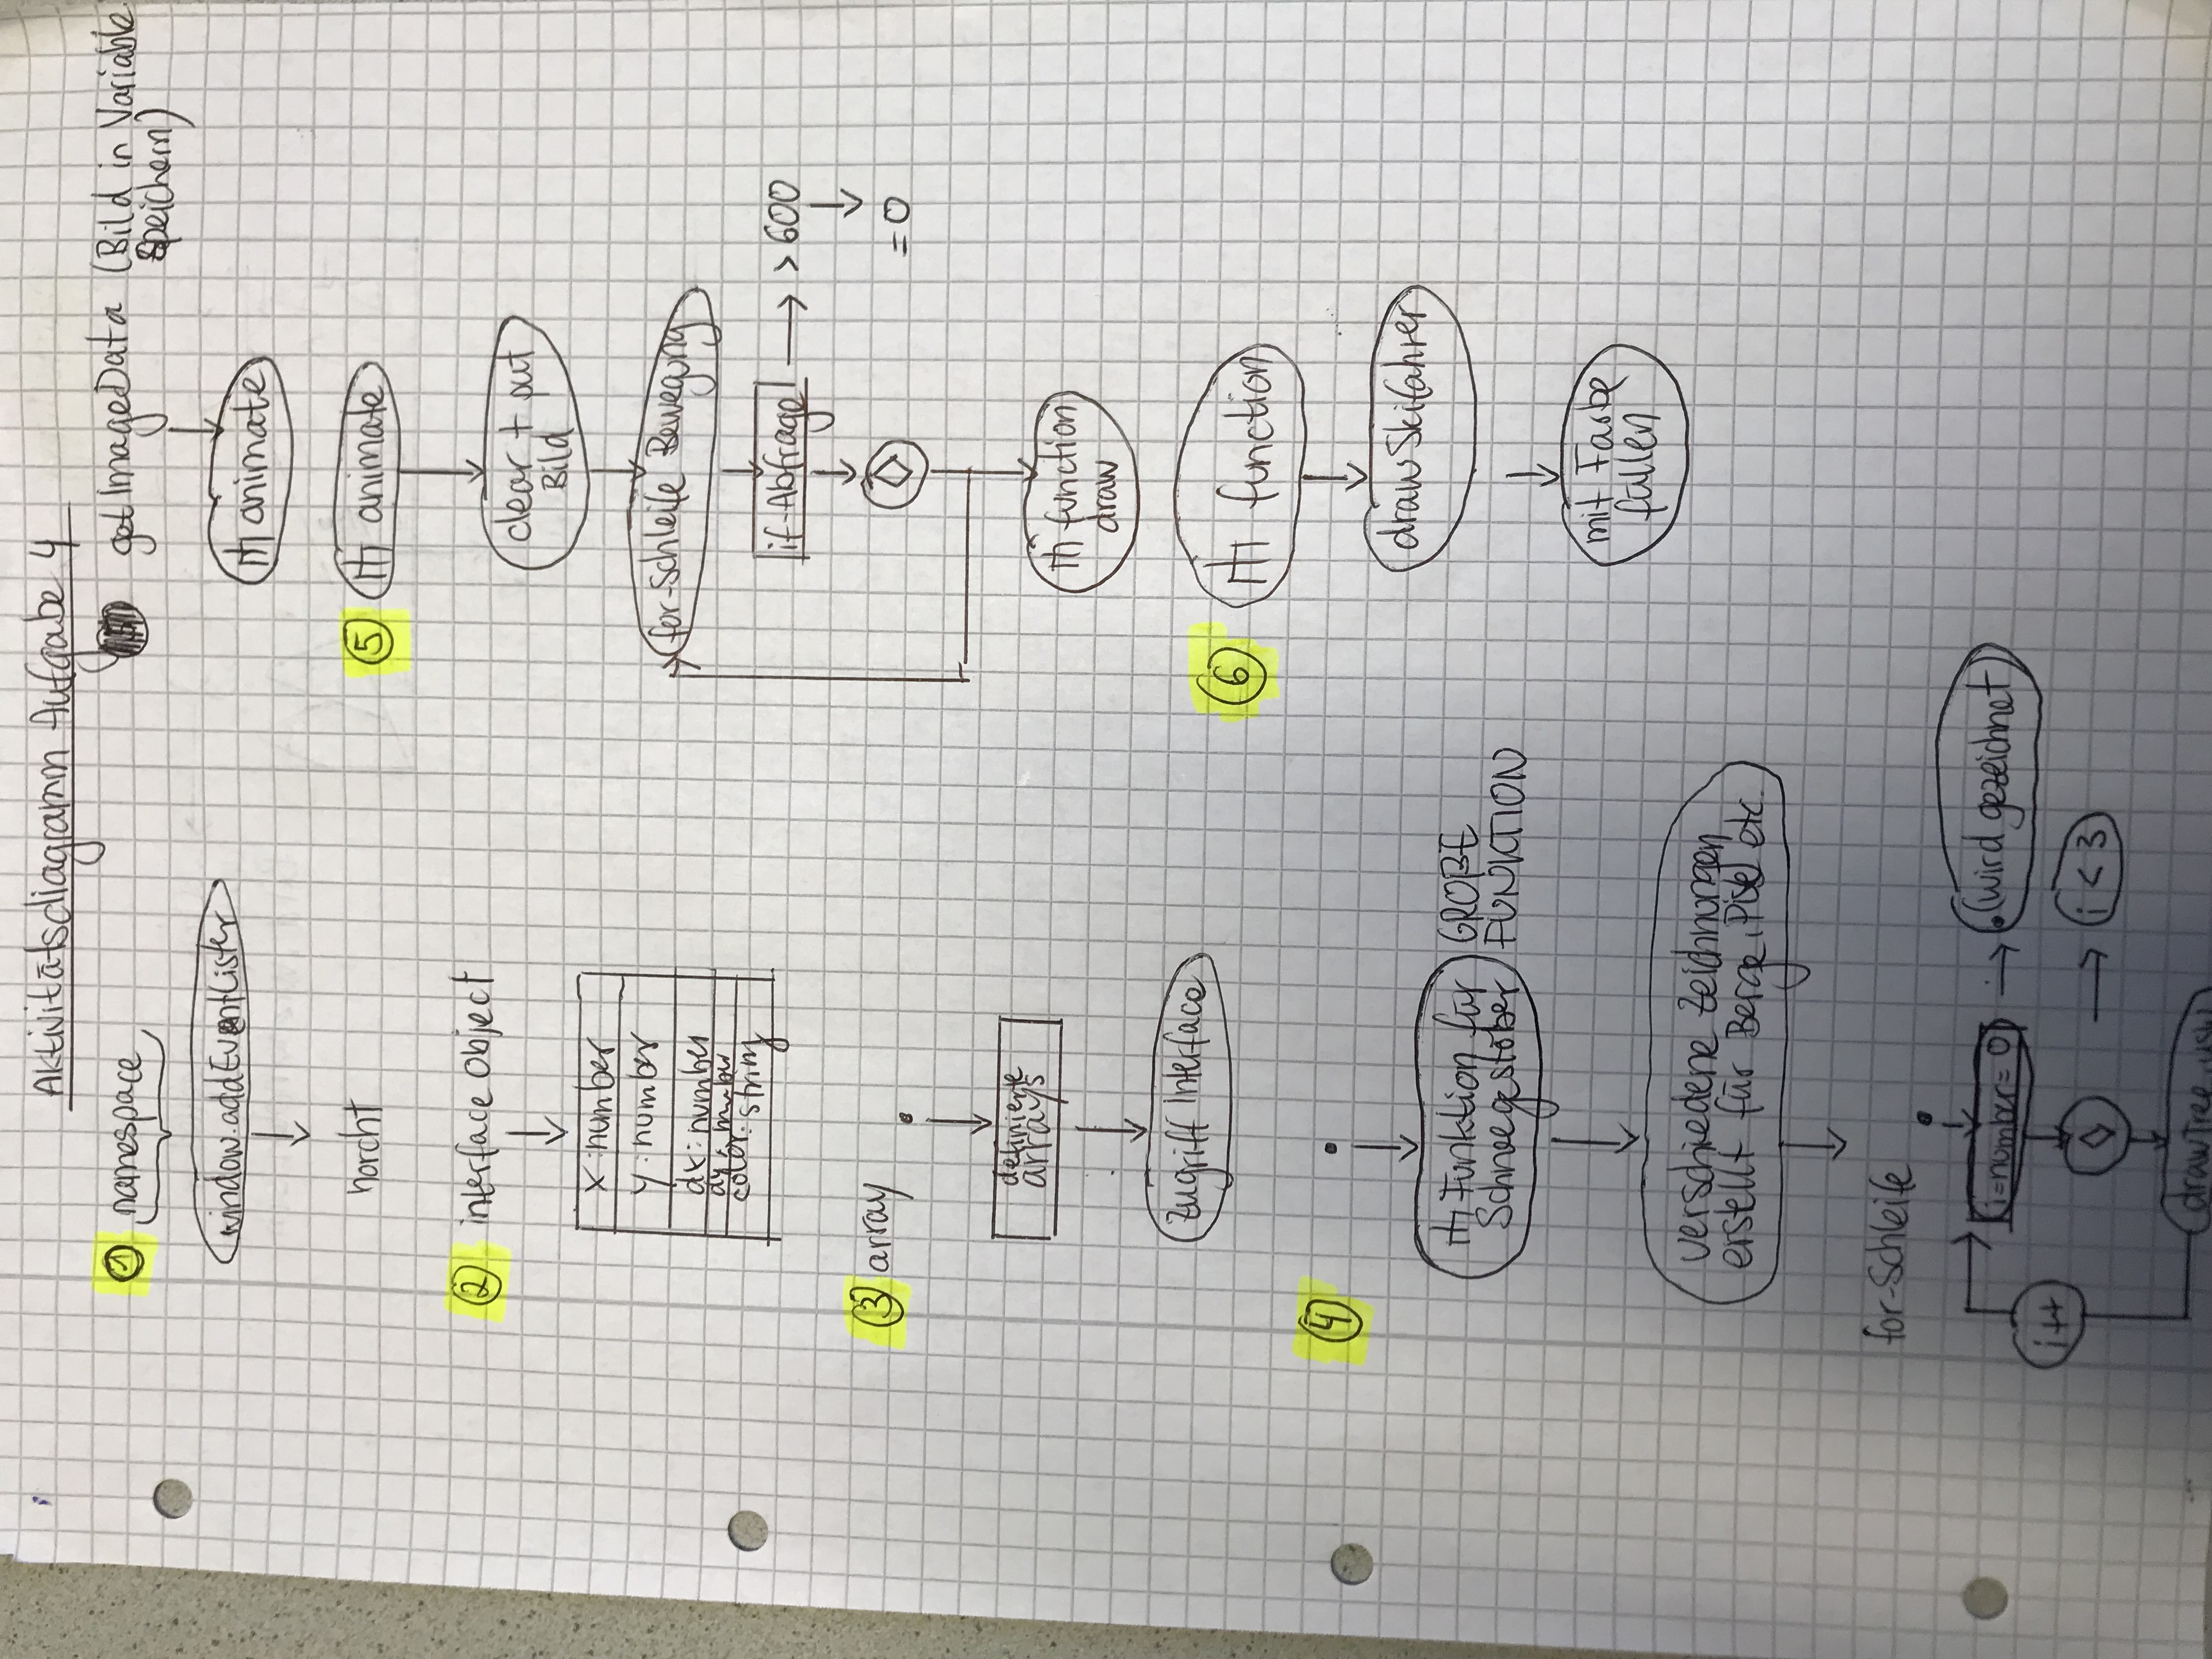 Aktivitätsdiagramm Aufgabe 4
① namespace
window.addEventLister
horcht
② interface Object
x:number
y:number
dx:number
dy:number
color:string
③ array
definierte
arrays
Zugriff Interface
④
Funktion für
Schneegestöber
GROßE
FUNKTION
verschiedene Zeichnungen
erstellt für Berge, Piste etc.
for-Schleife
i=number=0
(wird gezeichnet)
i++
i < 3
drawTree usw
getImageData (Bild in Variable
Speichern)
animate
⑤ animate
clear + put
Bild
for-Schleife Bewegung
if-Abfrage
> 600
= 0
function
draw
⑥ function
drawSkifahrer
mit Farbe
füllen